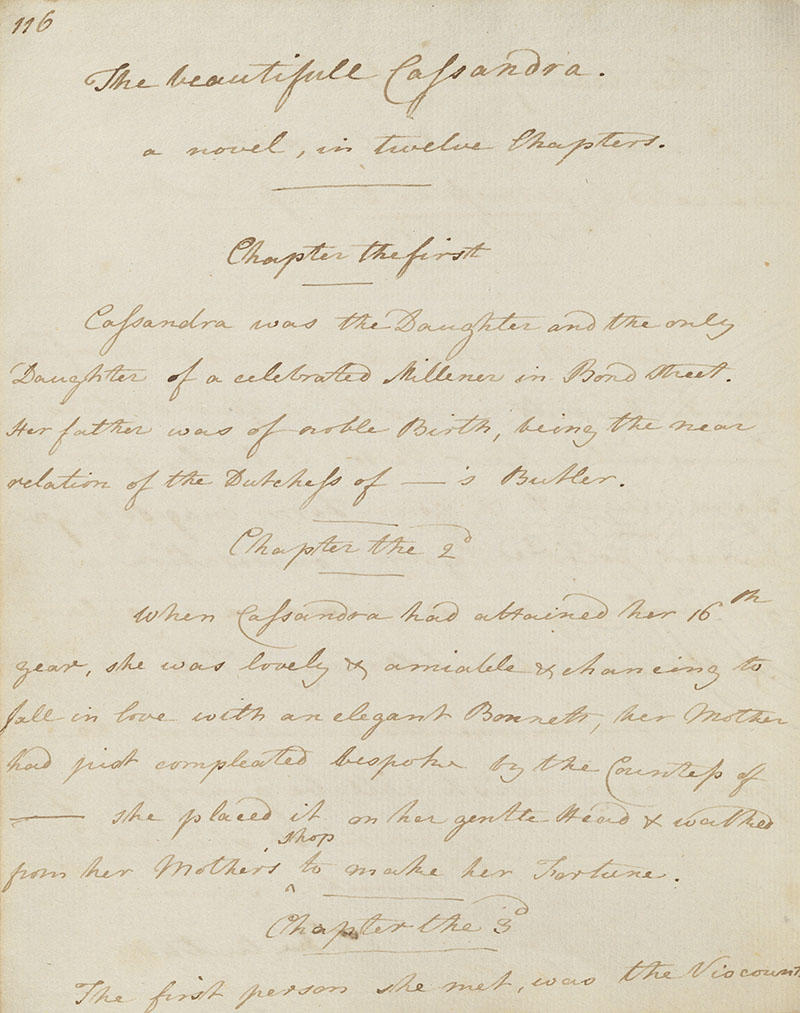 116
The beautifull Cassandra.
a novel, in twelve Chapters.
Chapter the first
Cassandra was the Daughter and the only
Daughter of a celebrated Millener in Bond Street.
Her father was of noble Birth, being the near
relation of the Dutchess of —'s Butler.
Chapter the 2d
When Cassandra had attained her 16th
year, she was lovely & amiable & chancing to
fall in love with an elegant Bonnett, her Mother
had just compleated bespoke by the Countess of
— she placed it on her gentle Head & walked
shop
from her Mothers ^ to make her Fortune.
Chapter the 3d
The first person she met, was the Viscount